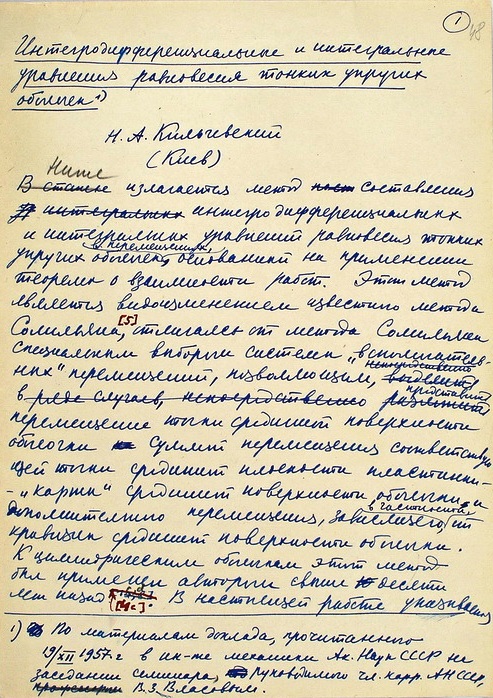 1
48
Интегродифференциальные и интегральные
уравнения равновесия тонких упругих
оболочек 1)
Н. А. Кильчевский
(Киев)
Ниже
В статье излагается метод составления
интегральных интегродифференциальных
и интегральных уравнений равновесия тонких
в перемещениях,
упругих оболочек, основанный на применении
теоремы о взаимности работ. Этот метод
является видоизменением известного метода
Сомильяна, [5] отличаясь от метода Сомильяна
специальным выбором системы "вспомогатель-
непосредственно
ных" перемещений, позволяющим,
представить
в ряде случаев, непосредственно
перемещение точки срединной поверхности
оболочки суммой перемещения соответствую-
щей точки срединной плоскости пластинки-
-"карты" срединной поверхности оболочки и
в частности,
дополнительного перемещения, зависящего, от
кривизн срединной поверхности оболочки.
К цилиндрическим оболочкам этот метод
был применен автором свыше десяти
лет назад [4c]. В настоящей работе указываются
1) По материалам доклада, прочитанного
19/XII 1957 г в ин-те механики Ак. Наук СССР на
заседании семинара, руководимого чл. корр. АН СССР,
профессором В.З. Власовым.